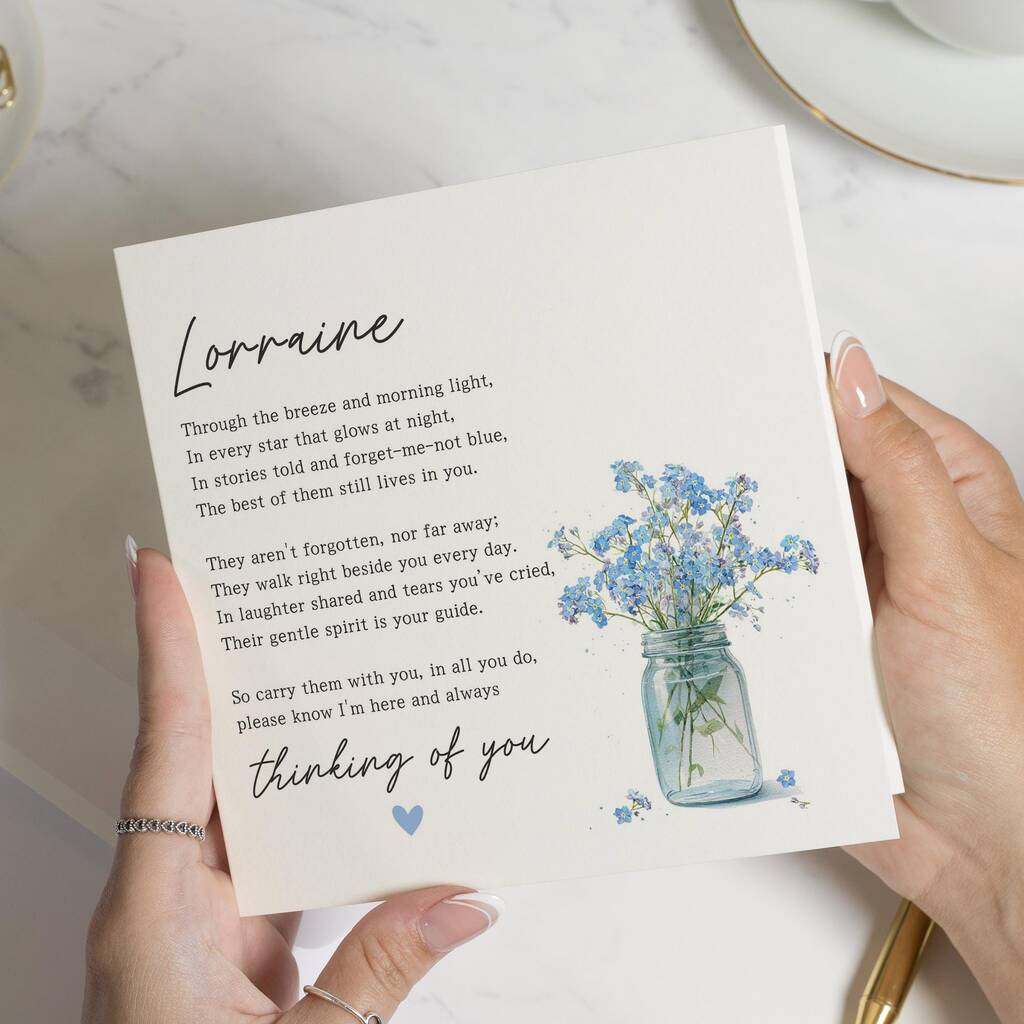 Lorraine
Through the breeze and morning light,
In every star that glows at night,
In stories told and forget-me-not blue,
The best of them still lives in you.
They aren't forgotten, nor far away;
They walk right beside you every day.
In laughter shared and tears you've cried,
Their gentle spirit is your guide.
So carry them with you, in all you do,
please know I'm here and always
thinking of you